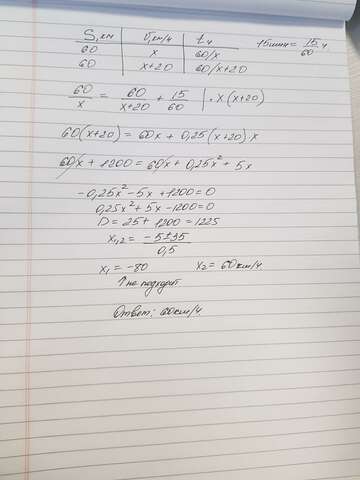 S, км v, км/ч t, ч 15 мин = 15/60 ч
60 x 60/x
60 x+20 60/x+20
60/x = 60/(x+20) + 15/60 | · x(x+20)
60(x+20) = 60x + 0,25(x+20)x
60x + 1200 = 60x + 0,25x² + 5x
-0,25x² - 5x + 1200 = 0
0,25x² + 5x - 1200 = 0
D = 25 + 1200 = 1225
x₁,₂ = (-5±35)/0,5
x₁ = -80 x₂ = 60 км/ч
↑ не подходит
Ответ: 60 км/ч